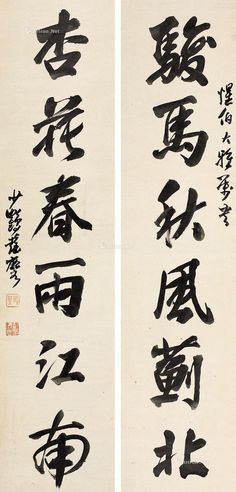 惺伯大雅属書
駿馬秋風薊北
杏花春雨江南
少鶴